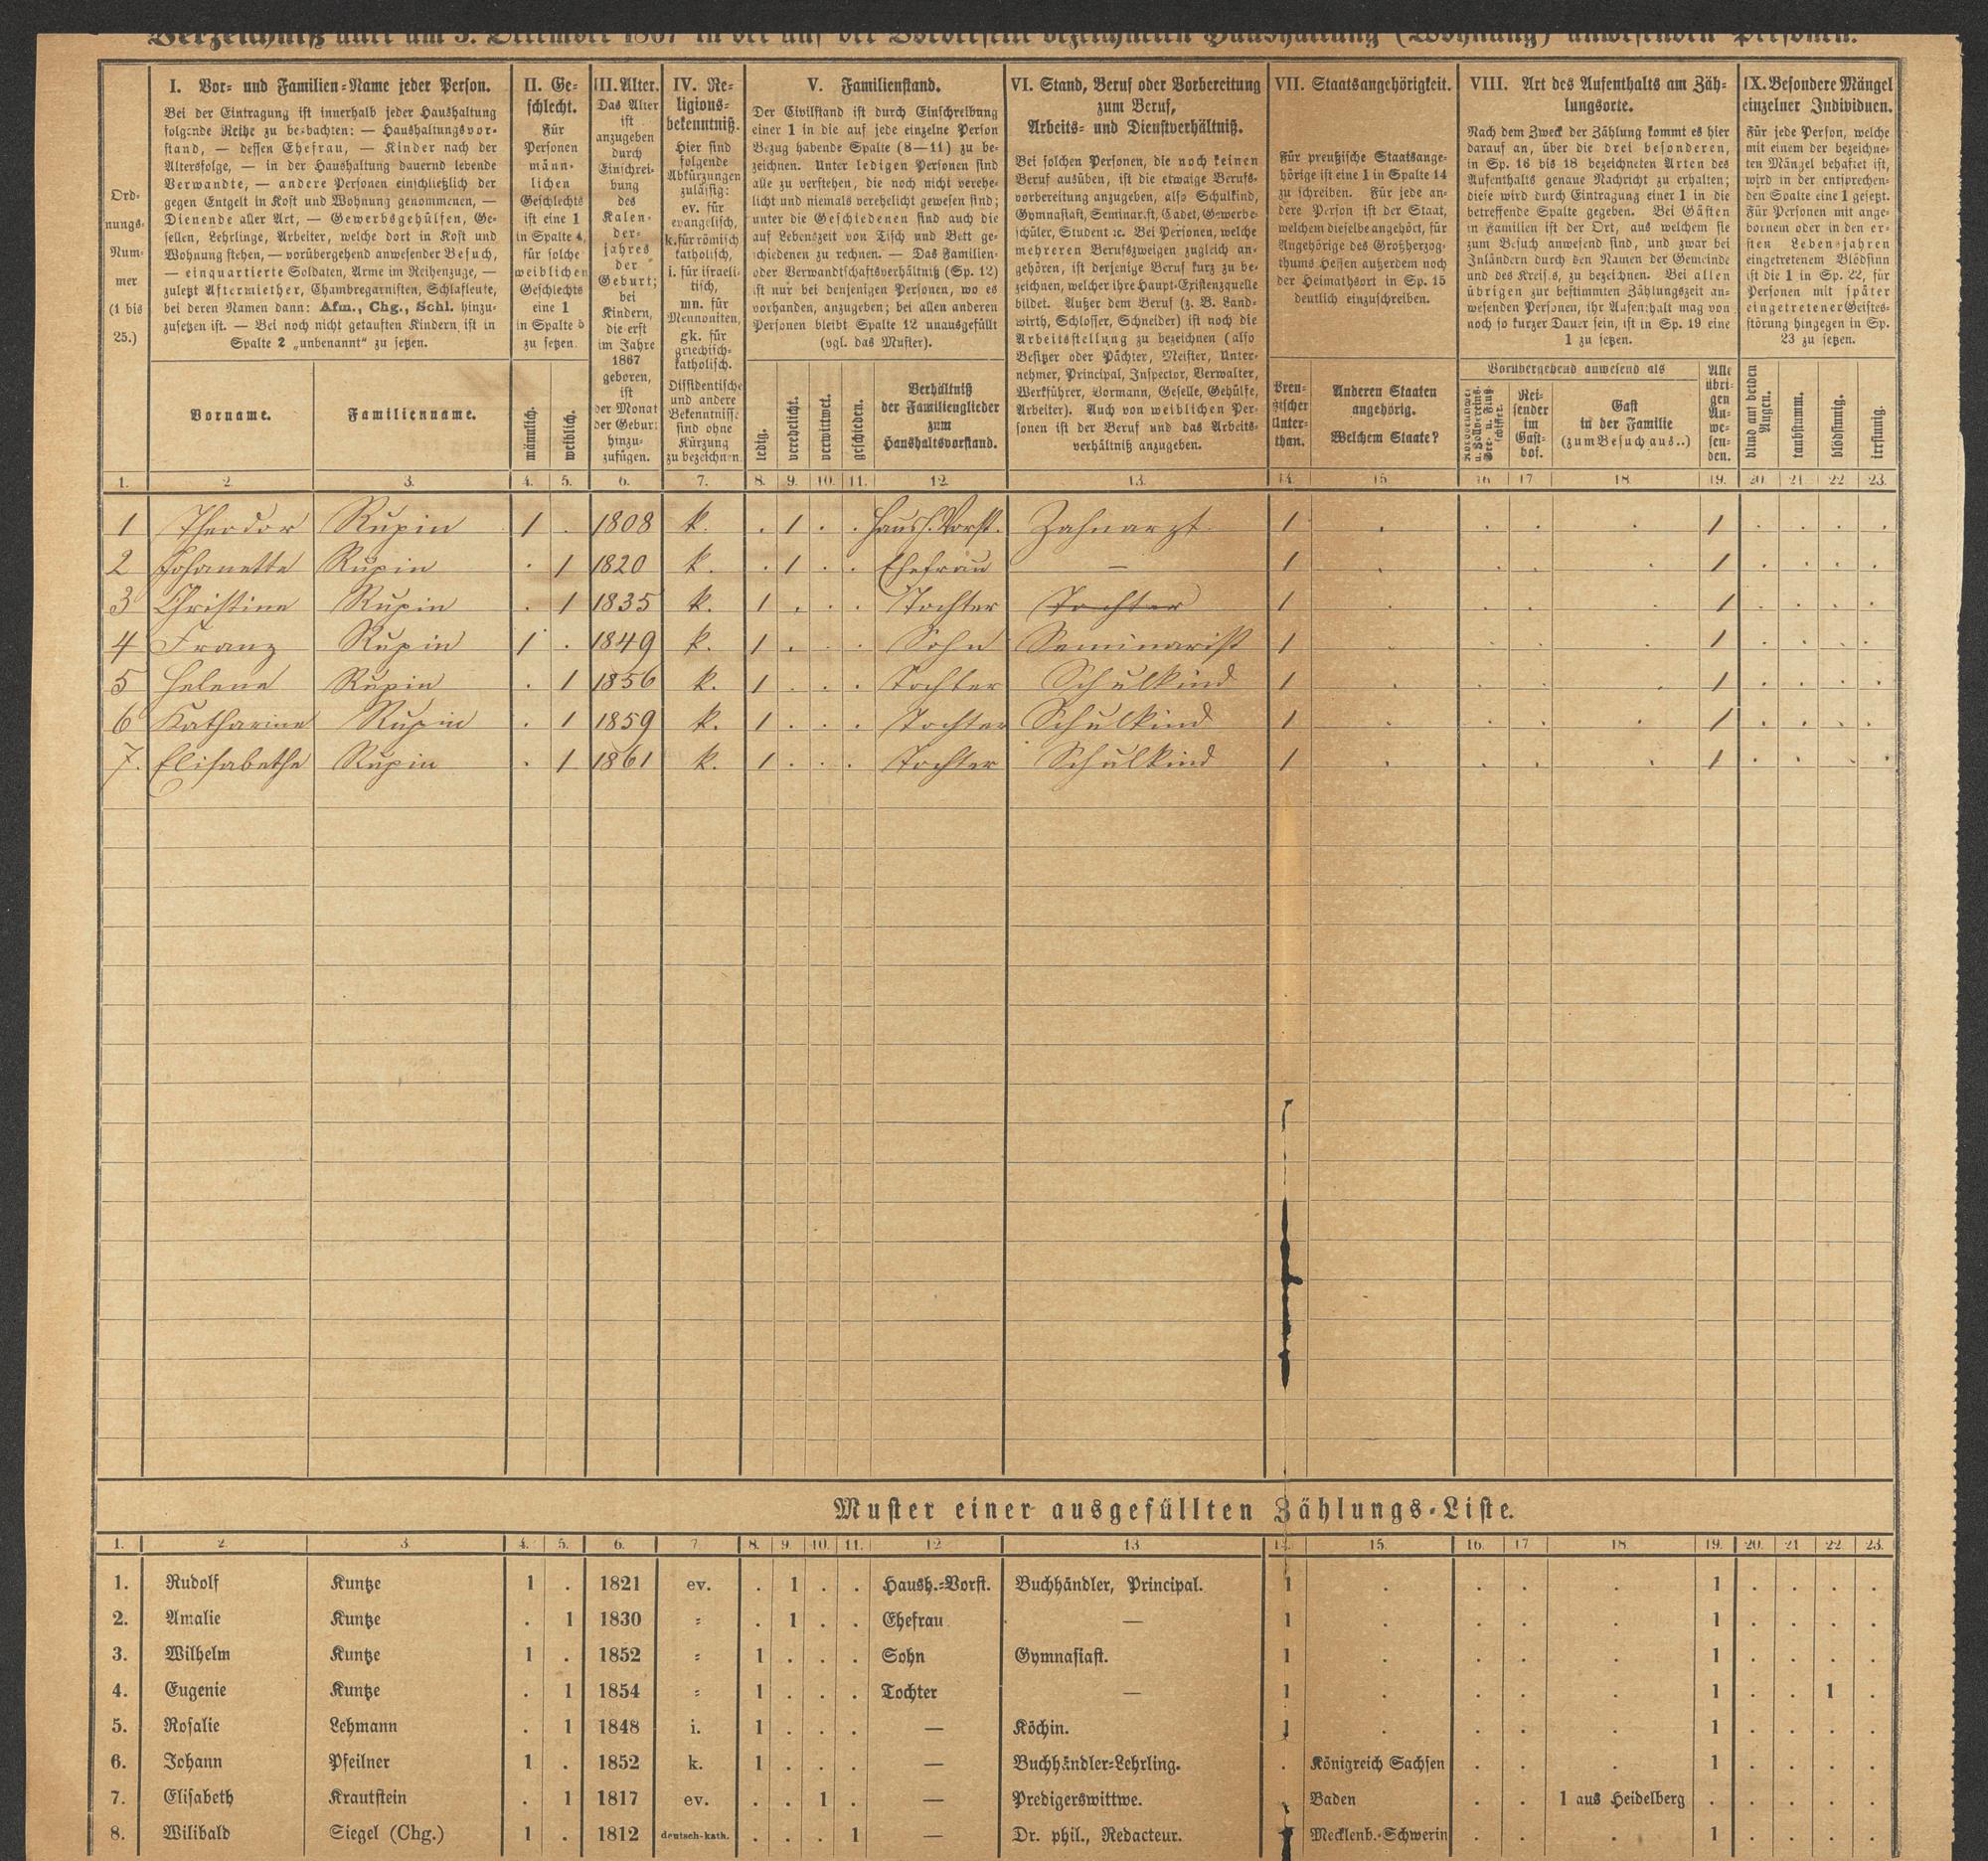 Verzeichniß aller am 3. December 1867 in der auf der Vorderseite bezeichneten Haushaltung (Wohnung) anwesenden Personen.
Ord-
nungs-
Num-
mer
(1 bis
25.)
I. Vor- und Familien-Name jeder Person.
Bei der Eintragung ist innerhalb jeder Haushaltung
folgende Reihe zu beobachten: — Haushaltungsvor-
stand, — dessen Ehefrau, — Kinder nach der
Altersfolge, — in der Haushaltung dauernd lebende
Verwandte, — andere Personen einschließlich der
gegen Entgelt in Kost und Wohnung genommenen, —
Dienende aller Art, — Gewerbsgehülfen, Ge-
sellen, Lehrlinge, Arbeiter, welche dort in Kost und
Wohnung stehen, — vorübergehend anwesender Besuch,
— einquartierte Soldaten, Arme im Reihenzuge, —
zuletzt Aftermiether, Chambregarnisten, Schlafleute,
bei deren Namen dann: Afm., Chg., Schl. hinzu-
zusetzen ist. — Bei noch nicht getauften Kindern, ist in
Spalte 2 „unbenannt" zu setzen.
Vorname.
Familienname.
II. Ge-
schlecht.
Für
Personen
männ-
lichen
Geschlechts
ist eine 1
in Spalte 4,
für solche
weiblichen
Geschlechts
eine 1
in Spalte 5
zu setzen.
männlich.
weiblich.
III. Alter.
Das Alter
ist
anzugeben
durch
Einschrei-
bung
des
Kalen-
der-
jahres
der
Geburt;
bei
Kindern,
die erst
im Jahre
1867
geboren,
ist
der Monat
der Geburt
hinzu-
zufügen.
IV. Re-
ligions-
bekenntniß.
Hier sind
folgende
Abkürzungen
zulässig:
ev. für
evangelisch,
k. für römisch
katholisch,
i. für israeli-
tisch,
mn. für
Mennoniten,
gk. für
griechisch-
katholisch.
Dissidentische
und andere
Bekenntnisse
sind ohne
Kürzung
zu bezeichnen.
V. Familienstand.
Der Civilstand ist durch Einschreibung
einer 1 in die auf jede einzelne Person
Bezug habende Spalte (8—11) zu be-
zeichnen. Unter ledigen Personen sind
alle zu verstehen, die noch nicht verehe-
licht und niemals verehelicht gewesen sind;
unter die Geschiedenen sind auch die
auf Lebenszeit von Tisch und Bett ge-
schiedenen zu rechnen. — Das Familien-
oder Verwandtschaftsverhältniß (Sp. 12)
ist nur bei denjenigen Personen, wo es
vorhanden, anzugeben; bei allen anderen
Personen bleibt Spalte 12 unausgefüllt
(vgl. das Muster).
ledig.
verehelicht.
verwittwet.
geschieden.
Verhältniß
der Familienglieder
zum
Haushaltsvorstand.
VI. Stand, Beruf oder Vorbereitung
zum Beruf,
Arbeits- und Dienstverhältniß.
Bei solchen Personen, die noch keinen
Beruf ausüben, ist die etwaige Berufs-
vorbereitung anzugeben, also Schulkind,
Gymnasiast, Seminarist, Cadet, Gewerbe-
schüler, Student ꝛc. Bei Personen, welche
mehreren Berufszweigen zugleich an-
gehören, ist derjenige Beruf kurz zu be-
zeichnen, welcher ihre Haupt-Existenzquelle
bildet. Außer dem Beruf (z. B. Land-
wirth, Schlosser, Schneider) ist noch die
Arbeitsstellung zu bezeichnen (also
Besitzer oder Pächter, Meister, Unter-
nehmer, Principal, Inspector, Verwalter,
Werkführer, Vormann, Geselle, Gehülfe,
Arbeiter). Auch von weiblichen Per-
sonen ist der Beruf und das Arbeits-
verhältniß anzugeben.
VII. Staatsangehörigkeit.
Für preußische Staatsange-
hörige ist eine 1 in Spalte 14
zu schreiben. Für jede an-
dere Person ist der Staat,
welchem dieselbe angehört, für
Angehörige des Großherzog-
thums Hessen außerdem noch
der Heimathsort in Sp. 15
deutlich einzuschreiben.
Preu-
ßischer
Unter-
than.
Anderen Staaten
angehörig.
Welchem Staate?
VIII. Art des Aufenthalts am Zäh-
lungsorte.
Nach dem Zweck der Zählung kommt es hier
darauf an, über die drei besonderen,
in Sp. 16 bis 18 bezeichneten Arten des
Aufenthalts genaue Nachricht zu erhalten;
diese wird durch Eintragung einer 1 in die
betreffende Spalte gegeben. Bei Gästen
in Familien ist der Ort, aus welchem sie
zum Besuch anwesend sind, und zwar bei
Inländern durch den Namen der Gemeinde
und des Kreises, zu bezeichnen. Bei allen
übrigen zur bestimmten Zählungszeit an-
wesenden Personen, ihr Aufenthalt mag von
noch so kurzer Dauer sein, ist in Sp. 19 eine
1 zu setzen.
Vorübergehend anwesend als
Rei-
sender
im
Gast-
hof.
Gast
in der Familie
(zum Besuch aus..)
Alle
übri-
gen
An-
we-
sen-
den.
IX. Besondere Mängel
einzelner Individuen.
Für jede Person, welche
mit einem der bezeichne-
ten Mängel behaftet ist,
wird in der entsprechen-
den Spalte eine 1 gesetzt.
Für Personen mit ange-
bornem oder in den er-
sten Lebensjahren
eingetretenem Blödsinn
ist die 1 in Sp. 22, für
Personen mit später
eingetretener Geistes-
störung hingegen in Sp.
23 zu setzen.
blind auf beiden
Augen.
taubstumm.
blödsinnig.
irrsinnig.
1. 2. 3. 4. 5. 6. 7. 8. 9. 10. 11. 12. 13. 14. 15. 16. 17. 18. 19. 20. 21. 22. 23.
1 Theodor Rupin 1 . 1808 k. . 1 . . Haush. Vorst. Zahnarzt 1 . . . . 1 . . . .
2 Johanette Rupin . 1 1820 k. . 1 . . Ehefrau — 1 . . . . 1 . . . .
3 Christine Rupin . 1 1835 k. 1 . . . Tochter Tochter 1 . . . . 1 . . . .
4 Franz Rupin 1 . 1849 k. 1 . . . Sohn Seminarist 1 . . . . 1 . . . .
5 Helena Rupin . 1 1856 k. 1 . . . Tochter Schulkind 1 . . . . 1 . . . .
6 Katharina Rupin . 1 1859 k. 1 . . . Tochter Schulkind 1 . . . . 1 . . . .
7. Elisabetha Rupin . 1 1861 k. 1 . . . Tochter Schulkind 1 . . . . 1 . . . .
Muster einer ausgefüllten Zählungs-Liste.
1. 2. 3. 4. 5. 6. 7. 8. 9. 10. 11. 12. 13. 14. 15. 16. 17. 18. 19. 20. 21. 22. 23.
1. Rudolf Kuntze 1 . 1821 ev. . 1 . . Haush.-Vorst. Buchhändler, Principal. 1 . . . . 1 . . . .
2. Amalie Kuntze . 1 1830 = . 1 . . Ehefrau — 1 . . . . 1 . . . .
3. Wilhelm Kuntze 1 . 1852 = 1 . . . Sohn Gymnasiast. 1 . . . . 1 . . . .
4. Eugenie Kuntze . 1 1854 = 1 . . . Tochter — 1 . . . . 1 . . 1 .
5. Rosalie Lehmann . 1 1848 i. 1 . . . — Köchin. 1 . . . . 1 . . . .
6. Johann Pfeilner 1 . 1852 k. 1 . . . — Buchhändler-Lehrling. . Königreich Sachsen . . . 1 . . . .
7. Elisabeth Krautstein . 1 1817 ev. . . 1 . — Predigerswittwe. . Baden . . 1 aus Heidelberg . . . . .
8. Wilibald Siegel (Chg.) 1 . 1812 deutsch-kath. . . . 1 — Dr. phil., Redacteur. Mecklenb.-Schwerin . . . 1 . . . .